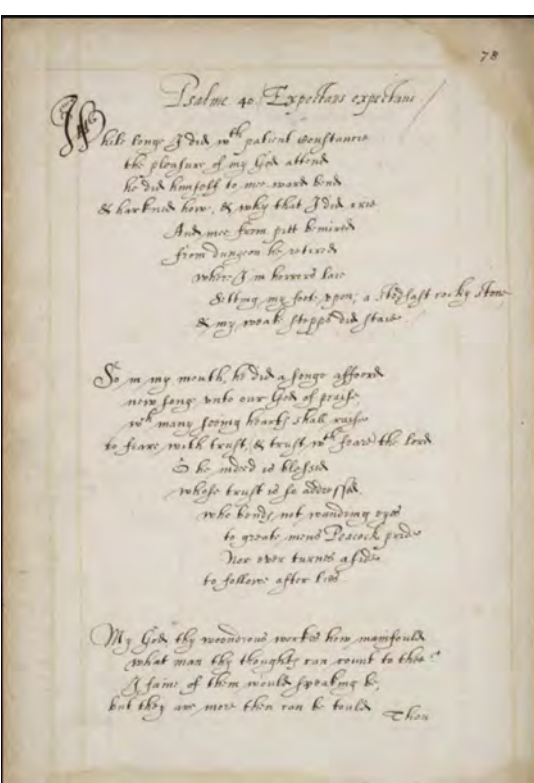 78
Psalme 40 / Expectans expectaui /
While longe I did wth patient Constancie
the pleasure of my God attend
he did himself to mee-ward bend
& harkned how, & why that I did crie
And mee from pitt bemired
from dungeon he retired
where I in horrors laie
setting my foote vpon; a stedfast rocky stone
& my weak stepps did staie
So in my mouth, he did a songe afford
new song vnto our God of praise
wch many seeing hearts shall raise
to feare with trust, & trust wth feare the lord
O he indeed is blessed
whose trust is so addressed
who bends not wandring eyes
to greate mens Peacock pride
Nor ever turnes aside
to followe after lies
My God thy woonderous workes how manifould
what man thy thoughts can count to thee
I faine of them would speaking be,
but they are more then can be tould
Thou